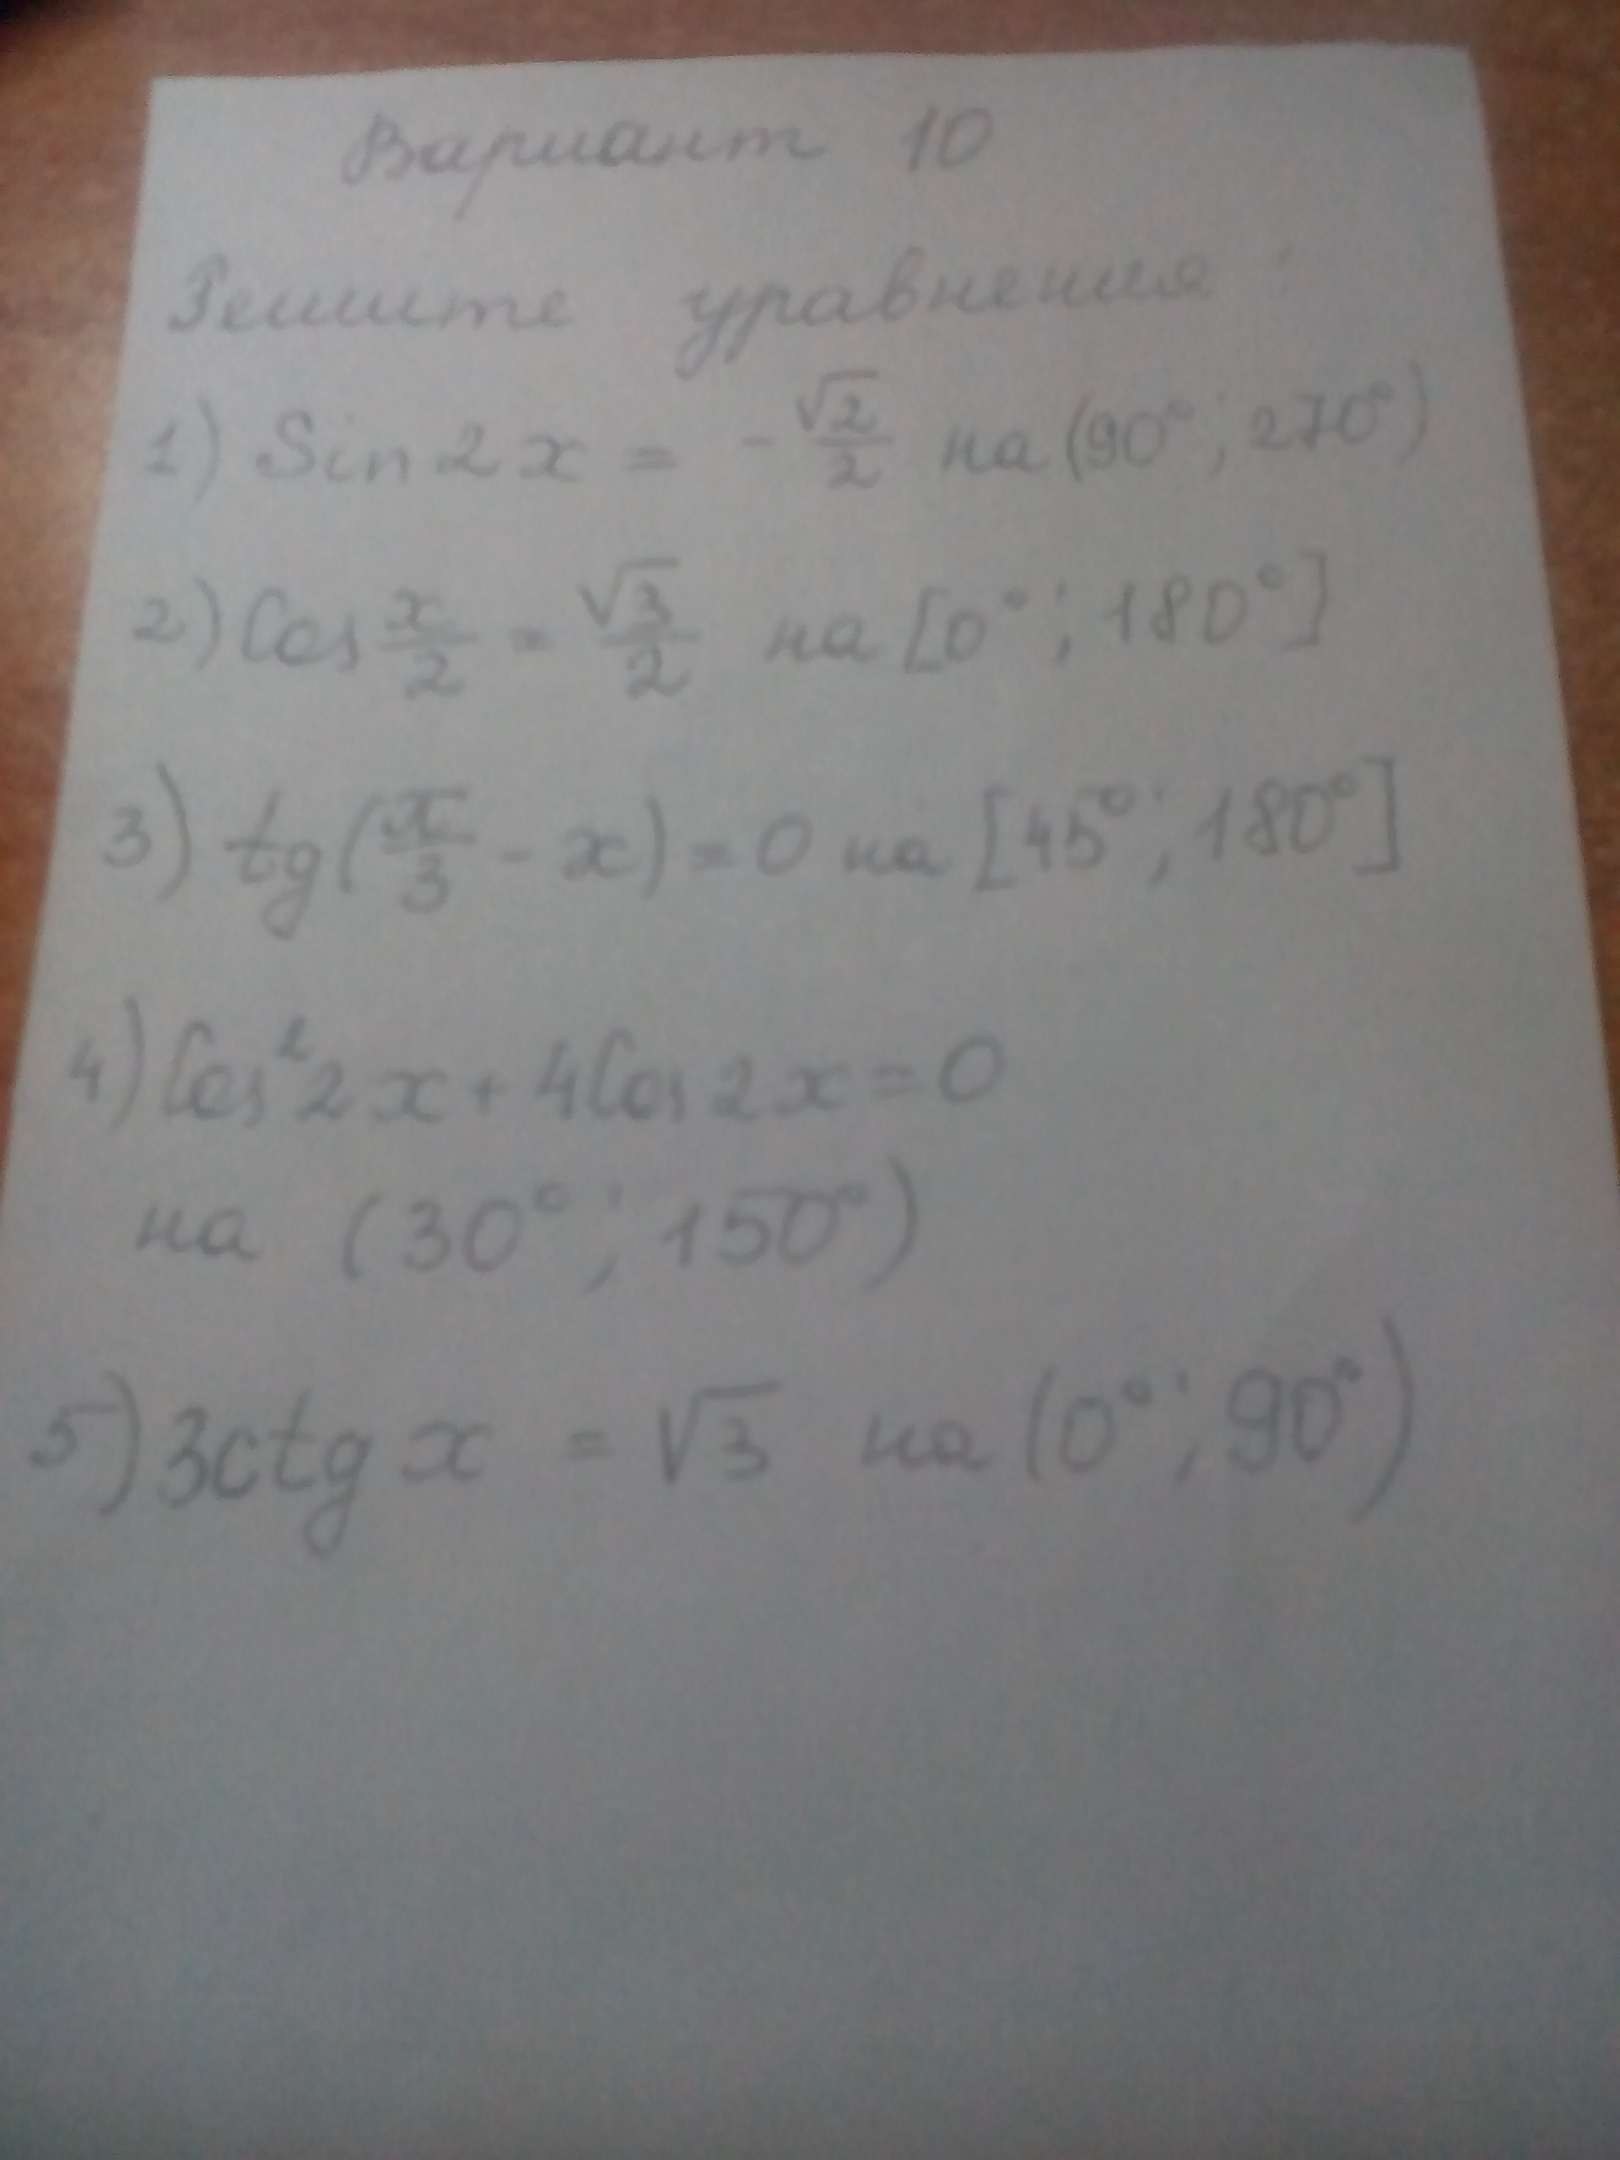 Вариант 10
Решите уравнения:
1) Sin 2x = -√2/2 на (90°; 270°)
2) Cos x/2 = √3/2 на [0°; 180°]
3) tg(π/3 - x) = 0 на [45°; 180°]
4) Cos² 2x + 4Cos 2x = 0
на (30°; 150°)
5) 3ctg x = √3 на (0°; 90°)